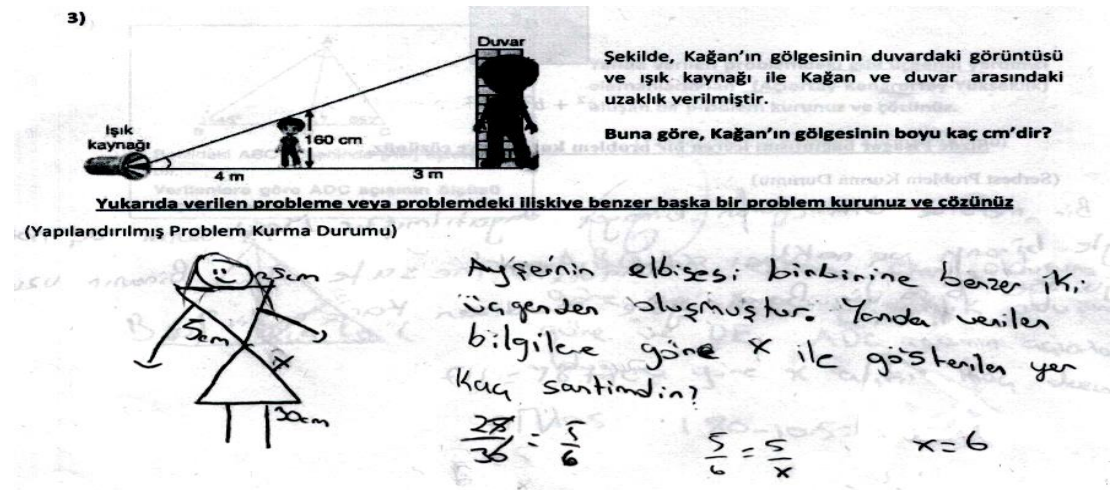 3)
Duvar
Işık
kaynağı
160 cm
4 m
3 m
Şekilde, Kağan'ın gölgesinin duvardaki görüntüsü
ve ışık kaynağı ile Kağan ve duvar arasındaki
uzaklık verilmiştir.
Buna göre, Kağan'ın gölgesinin boyu kaç cm'dir?
Yukarıda verilen probleme veya problemdeki ilişkiye benzer başka bir problem kurunuz ve çözünüz
(Yapılandırılmış Problem Kurma Durumu)
25cm
5cm
x
30cm
Ayşe'nin elbisesi birbirine benzer iki
üçgenden oluşmuştur. Yanda verilen
bilgilere göre x ile gösterilen yer
Kaç santimdir?
= 5/6
5/6 = 5/x
x=6